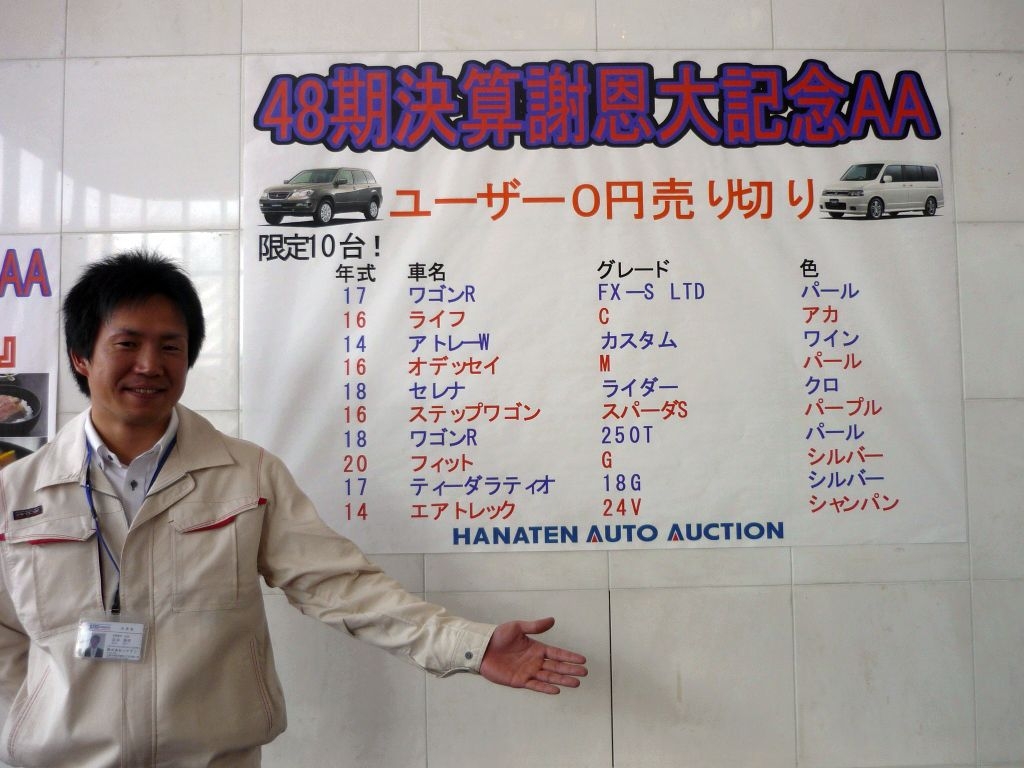 48期決算謝恩大記念AA
ユーザー0円売り切り
限定10台！
年式 車名 グレード 色
17 ワゴンR FX-S LTD パール
16 ライフ C アカ
14 アトレーW カスタム ワイン
16 オデッセイ M パール
18 セレナ ライダー クロ
16 ステップワゴン スパーダS パープル
18 ワゴンR 250T パール
20 フィット G シルバー
17 ティーダラティオ 18G シルバー
14 エアトレック 24V シャンパン
HANATEN AUTO AUCTION
AA
』